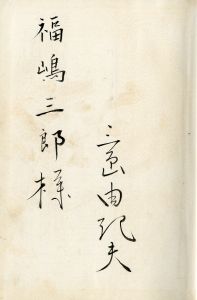 福嶋三郎様
三島由紀夫